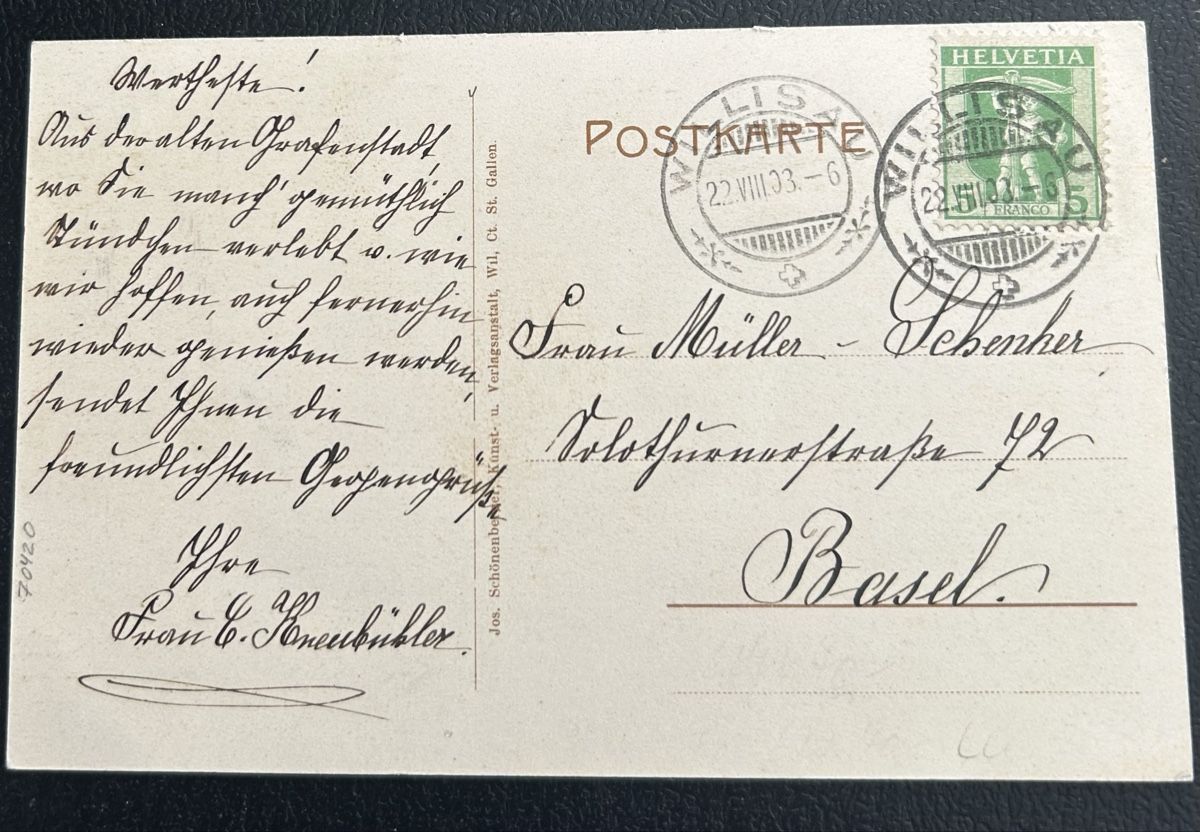 Wertheste!
Aus der alten Grafenstadt,
wo Sie manch' gemüthlich
Stündchen verlebt u. wie
wir hoffen, auch fernerhin
wieder genießen werden,
sendet Ihnen die
freundlichsten Gegengrüße,
Ihre
Frau E.
70420
Jos. Schönenberger, Kunst- u. Verlagsanstalt, Wil, Ct. St. Gallen.
POSTKARTE
WILLISAU
22.VIII.
-6
WILLISAU
22.VIII.
-6
HELVETIA
5
FRANCO
Frau Müller - Schenker
Solothurnerstraße 72
Basel.